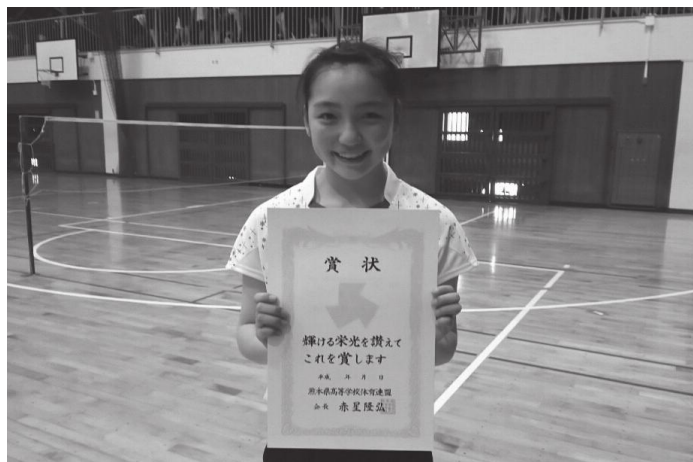 賞状
輝ける栄光を讃えて
これを賞します
平成　年　月　日
熊本県高等学校体育連盟
会長　赤星隆弘